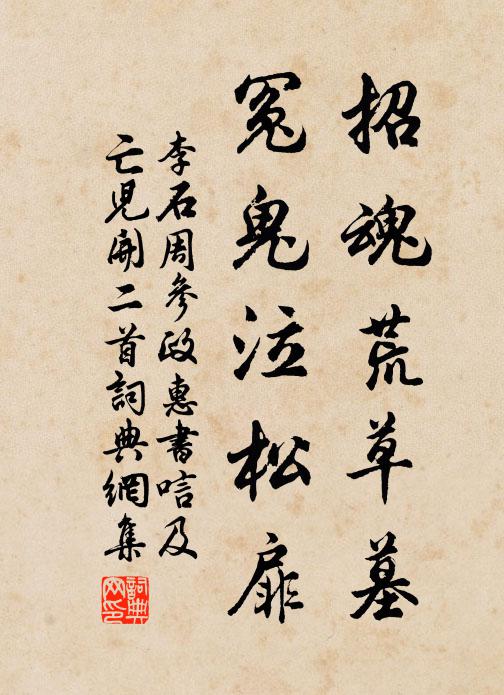 招魂荒草墓
冤鬼泣松扉
李石周參政惠書唁及
亡兒開二首詞典網集
詞典
网印